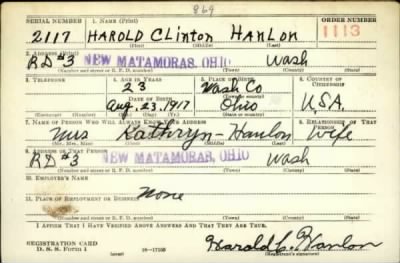 869
SERIAL NUMBER 1. NAME (Print) ORDER NUMBER
2117 HAROLD CLinton HANLON 1113
(First) (Middle) (Last)
2. ADDRESS (Print)
RD#3 NEW MATAMORAS, OHIO Wash
(Number and street or R. F. D. number) (Town) (County) (State)
3. TELEPHONE 4. AGE IN YEARS 5. PLACE OF BIRTH 6. COUNTRY OF CITIZENSHIP
23 Wash Co
DATE OF BIRTH (Town or county)
Aug. 23, 1917 Ohio U.S.A.
(Exchange) (Number) (Mo.) (Day) (Yr.) (State or country)
7. NAME OF PERSON WHO WILL ALWAYS KNOW YOUR ADDRESS 8. RELATIONSHIP OF THAT PERSON
Mrs Kathryn - Hanlon Wife
(Mr., Mrs., Miss) (First) (Middle) (Last)
9. ADDRESS OF THAT PERSON
RD#3 NEW MATAMORAS, OHIO Wash
(Number and street or R. F. D. number) (Town) (County) (State)
10. EMPLOYER'S NAME
None
11. PLACE OF EMPLOYMENT OR BUSINESS
(Number and street or R. F. D. number) (Town) (County) (State)
I AFFIRM THAT I HAVE VERIFIED ABOVE ANSWERS AND THAT THEY ARE TRUE.
REGISTRATION CARD
D. S. S. Form 1 (over) 16—17105 Harold C. Hanlon
(Registrant's signature)